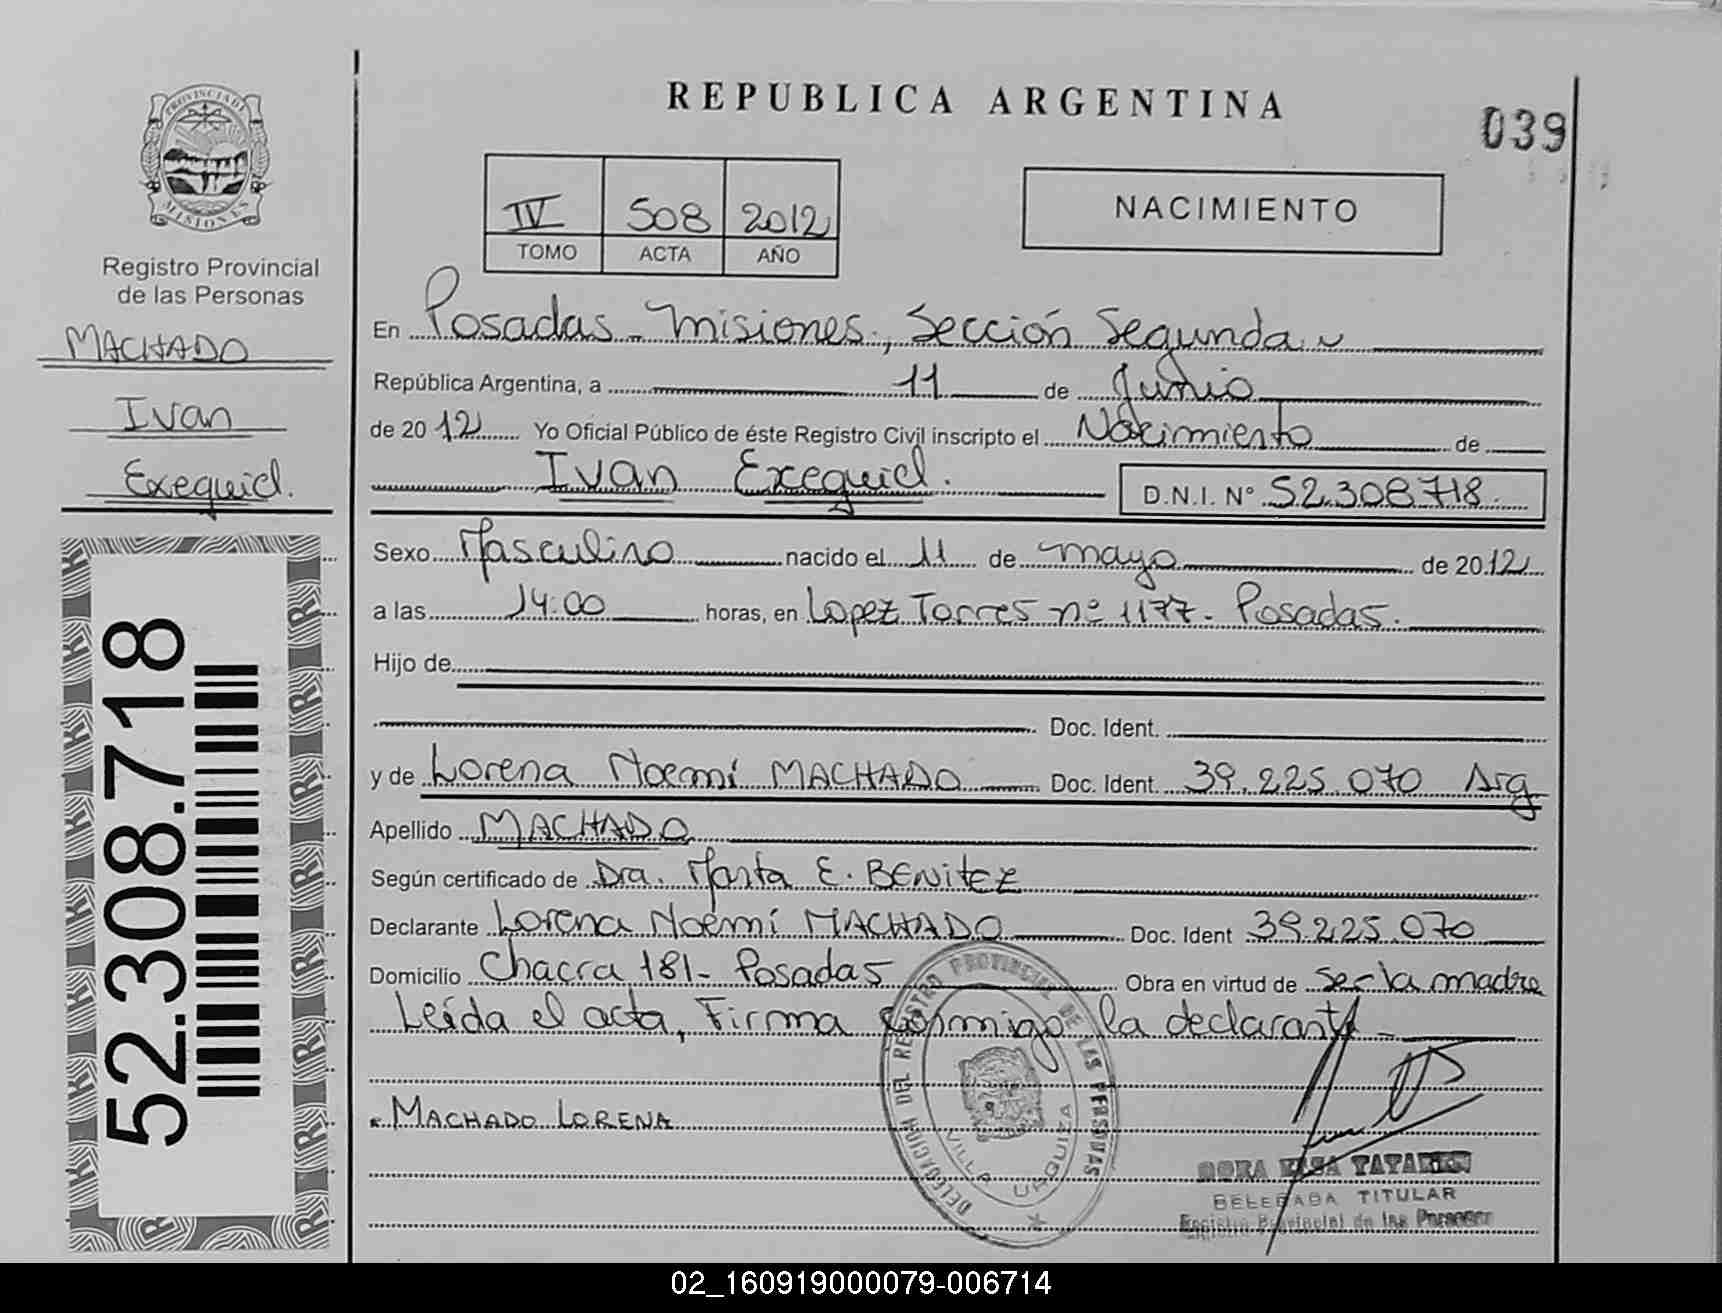 REPUBLICA ARGENTINA
039
PROVINCIA DE
MISIONES
Registro Provincial
de las Personas
MACHADO
Ivan
Exequiel.
52.308.718
IV 508 2012
TOMO ACTA AÑO
NACIMIENTO
En Posadas - Misiones, Sección Segunda
República Argentina, a 11 de Junio
de 2012 Yo Oficial Público de éste Registro Civil inscripto el Nacimiento de
Ivan Exequiel. D.N.I. N° 52.308718.
Sexo Masculino nacido el 11 de mayo de 2012
a las 14:00 horas, en Lopez Torres n° 1177 - Posadas.
Hijo de
Doc. Ident.
y de Lorena Noemí MACHADO Doc. Ident. 39.225.070 Arg
Apellido MACHADO
Según certificado de Dra. Marta E. BENITEZ
Declarante Lorena Noemí MACHADO Doc. Ident 39.225.070
Domicilio Chacra 181 - Posadas Obra en virtud de ser la madre
Leída el acta, Firma conmigo la declarante -
MACHADO LORENA
DELEGACION DEL REGISTRO PROVINCIAL DE LAS PERSONAS
VILLA URQUIZA
DELEGADA TITULAR
Registro Provincial de las Personas
02_160919000079-006714